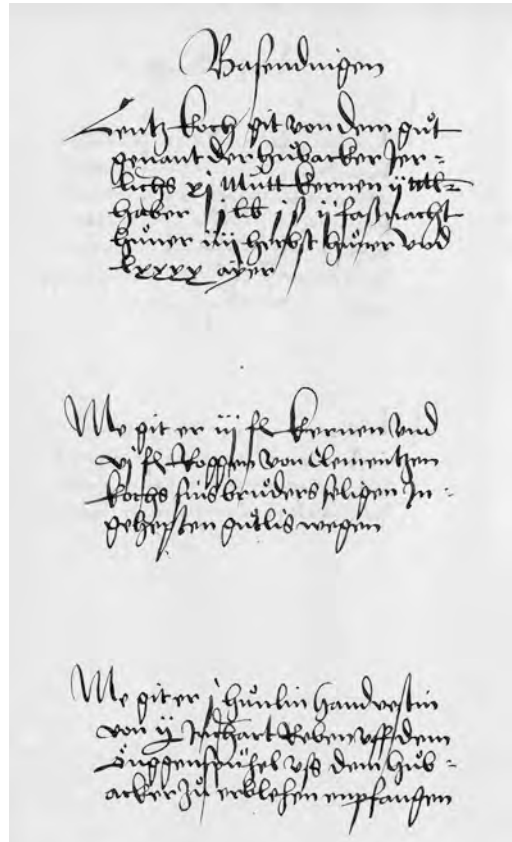 Basendingen
Lentz koch git von dem gůt
genant der hůbacker Jer-
lichs xj Mutt kernen ij Mlr
haber j lb j ß ij fasnacht
hůner iiij herbst hůner vnd
lxxxx ayer
Me git er iij fl kernen vnd
vj fl Roggen von Clementzen
kochs sins brůders seligen In-
gehepten gůtlis wegen
Me git er j hůnlin hand vestin
von ij Juchart Reben vff dem
vss dem hůb-
acker zů erblehen enpfangen